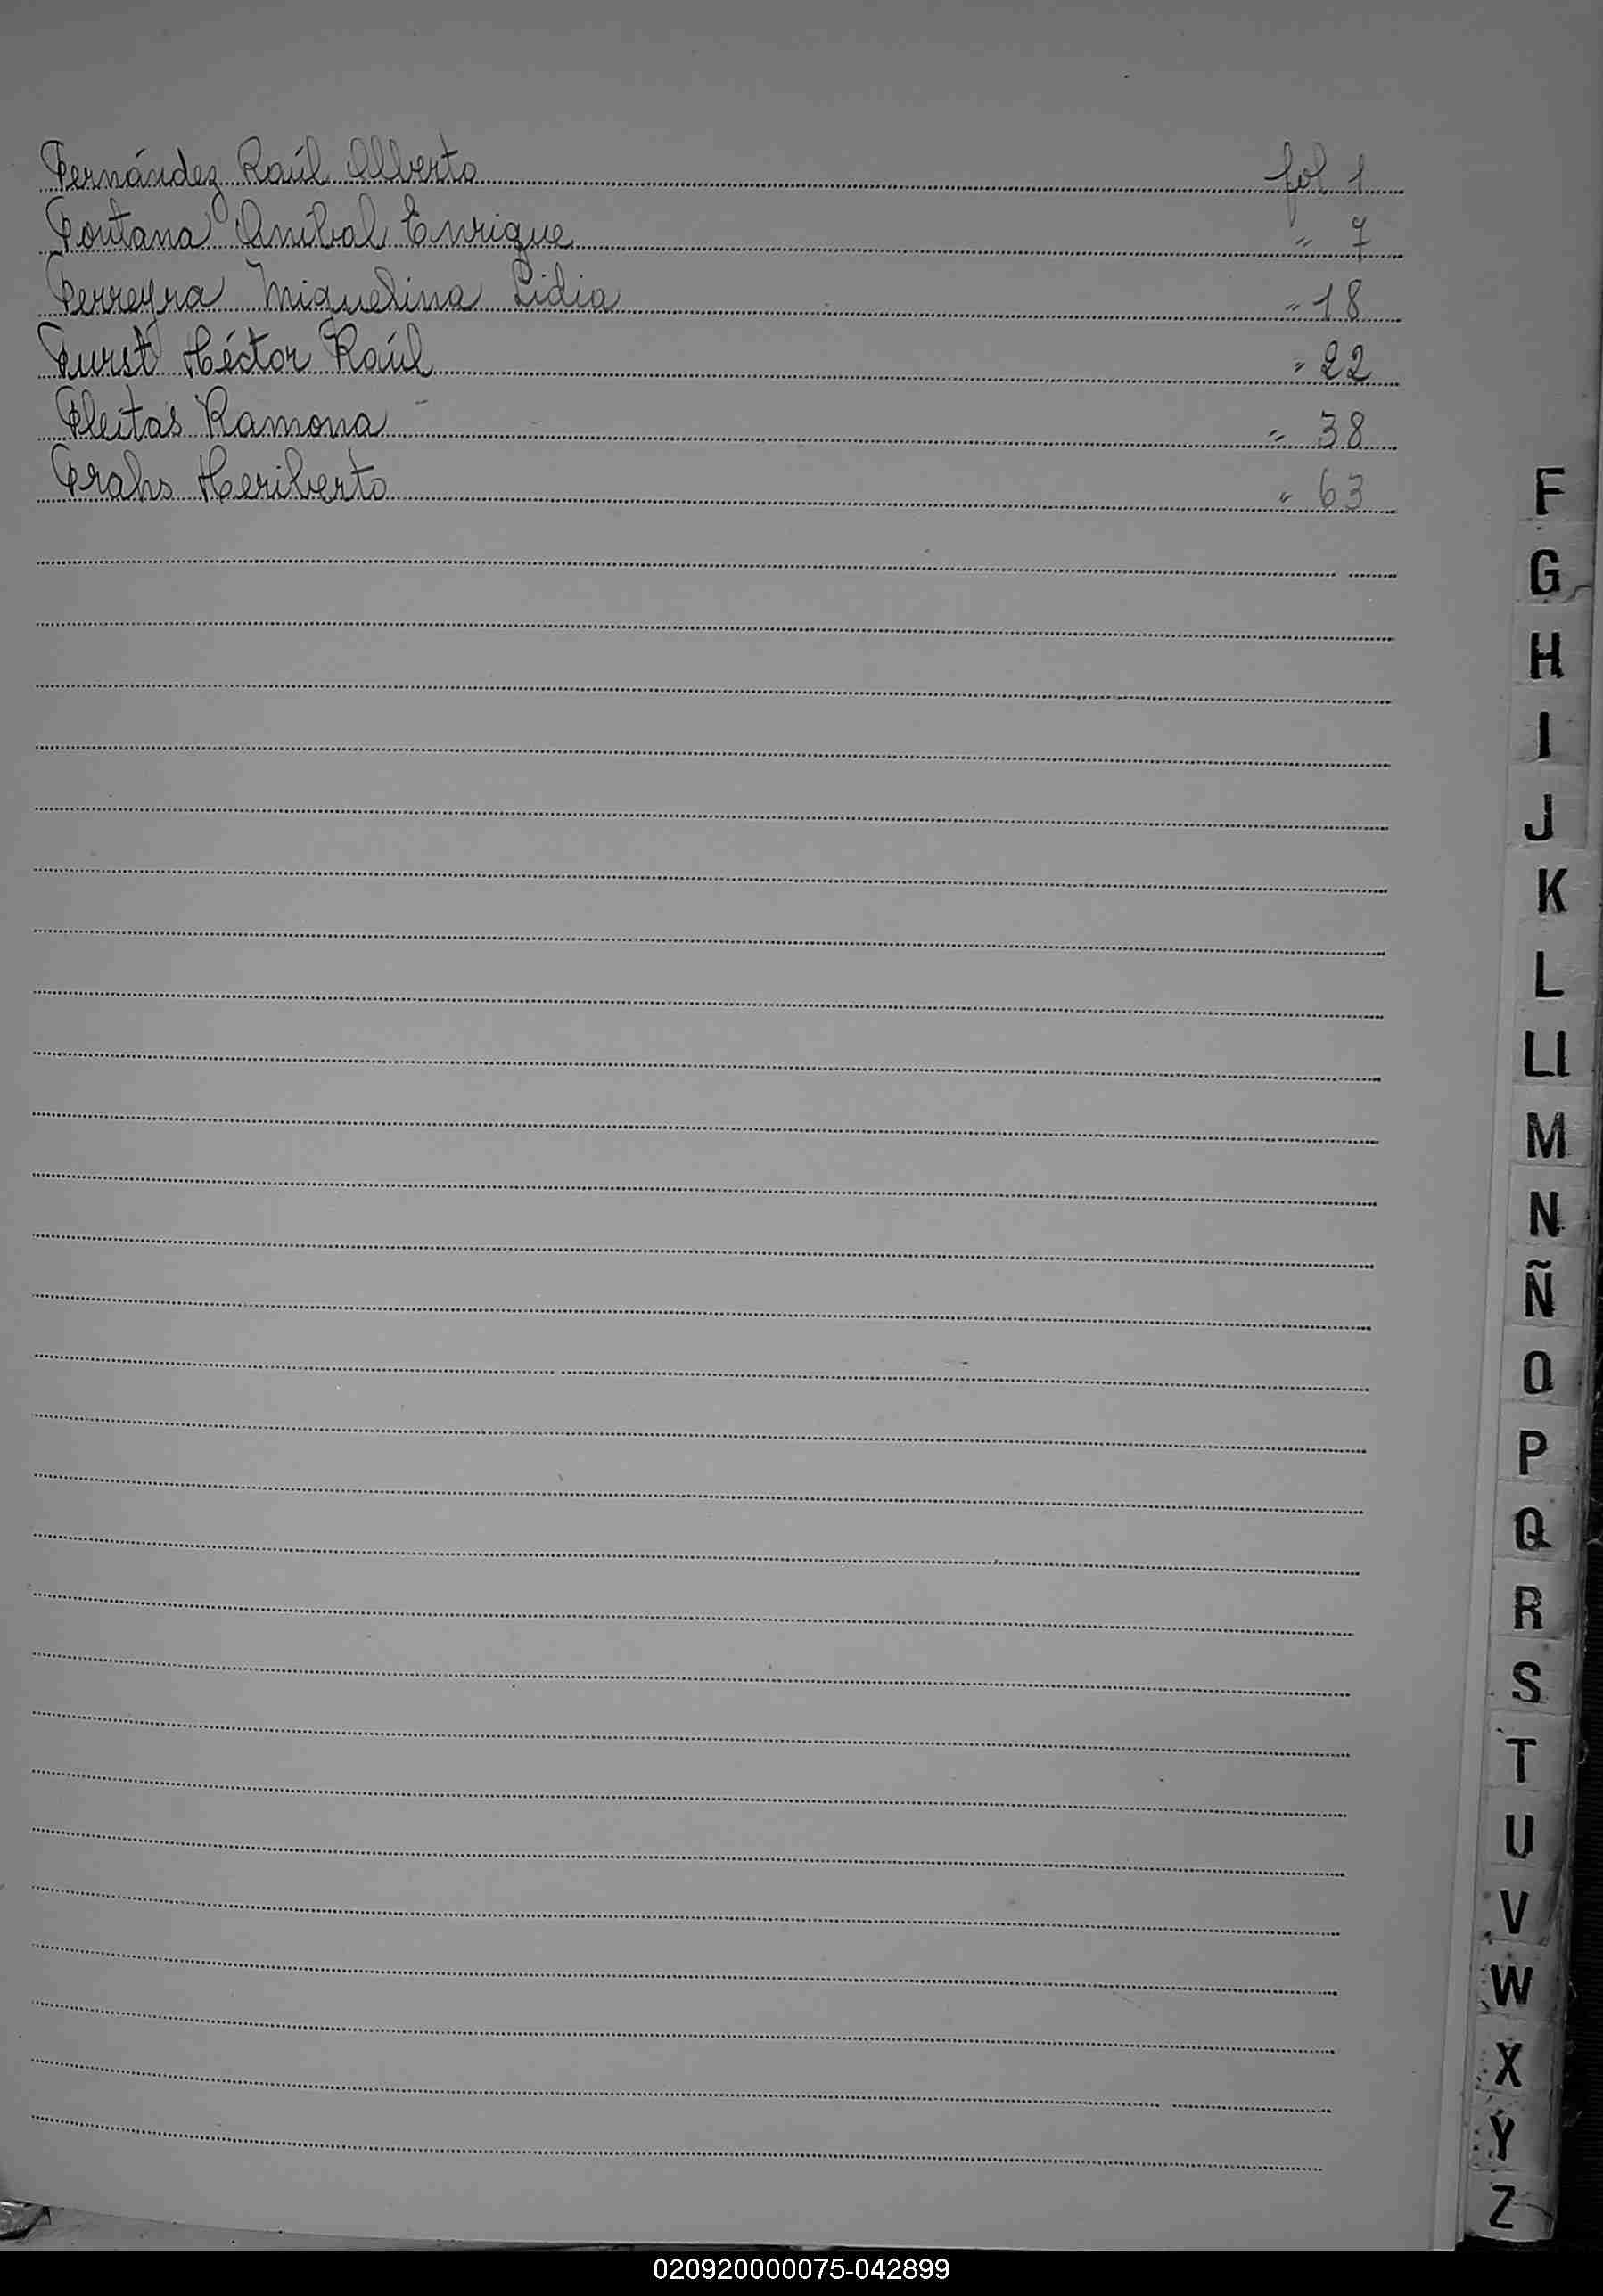 Fernández Raúl Alberto fol 1
Fontana Anibal Enrique " 7
Ferreyra Miguelina Lidia " 18
Furst Héctor Raúl " 22
Fleitas Ramona " 38
Frahs Heriberto " 63
F
G
H
I
J
K
L
Ll
M
N
Ñ
O
P
Q
R
S
T
U
V
W
X
Y
Z
020920000075-042899